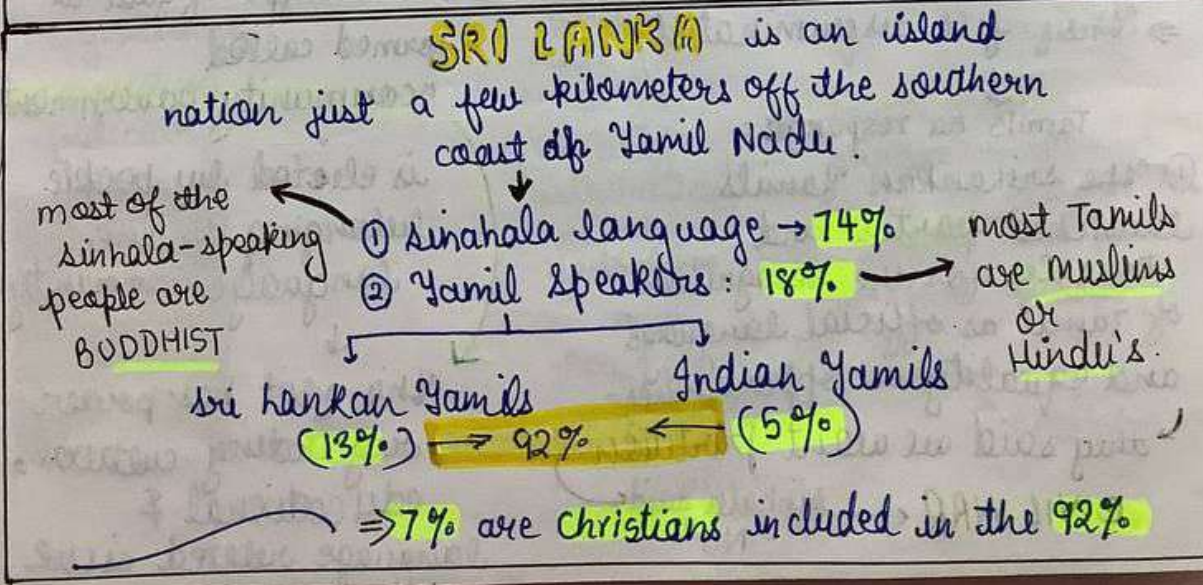 SRI LANKA is an island
nation just a few kilometers off the southern
coast of Tamil Nadu.
most of the
sinhala-speaking
people are
BUDDHIST
① sinahala language → 74%
② Tamil speakers : 18%
most Tamils
are muslims
or
Hindu's.
Sri Lankan Tamils
(13%) → 92% ← (5%)
Indian Tamils
⇒ 7% are Christians included in the 92%